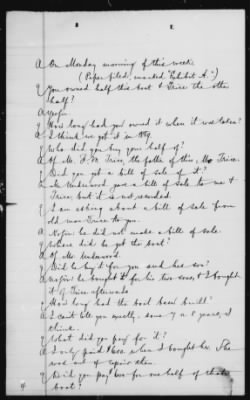 A On Monday morning of this week.
(Paper filed, marked "Exhibit A.")
Q You owned half this boat & Trice the other
half?
A Yessir.
Q How long had you owned it when it was taken?
A I think we got it in
Q Who did you buy your half of?
A Of Mr. Trice, the father of this, Trice.
Q Did you get a bill of sale of it?
A Mr Underwood gave a bill of sale to me &
Trice, but it is not recorded.
Q I am asking about a bill of sale from
old man Trice to you.
A Nosir he did not make a bill of sale.
Q Where did he get the boat?
A Of Mr. Underwood.
Q Did he buy it for you and his son?
A Nosir he bought it for his two sons, & I bought
it of Trice afterwards.
Q How long had the boat been built?
A I can't tell you exactly. some 7 or 8 years, I
think.
Q What did you pay for it?
A I only paid when I bought her. She
was out of repair then.
Q Did you pay for one half of that
boat?